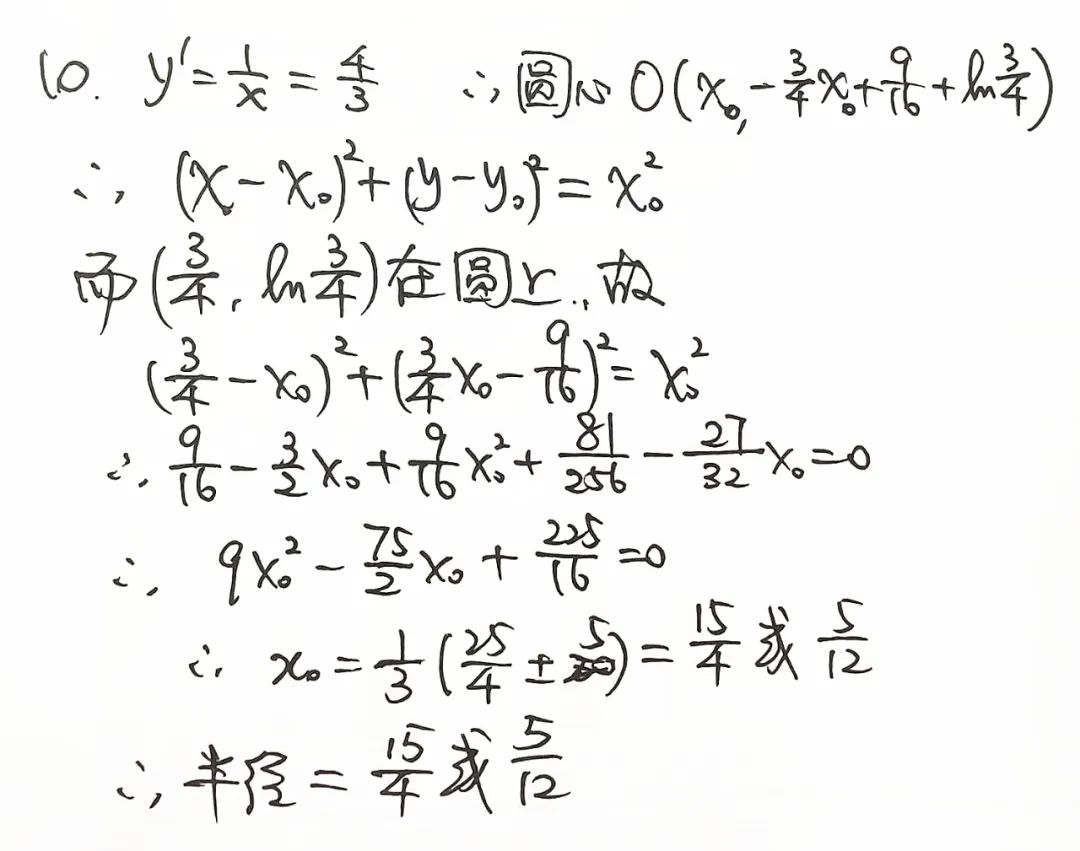 10. y′=1/x=4/3 ∴圆心O(x₀,-3/4x₀+9/16+ln3/4)
∴ (x-x₀)²+(y-y₀)²=x₀²
而(3/4, ln3/4)在圆上,故
(3/4-x₀)²+(3/4x₀-9/16)²=x₀²
∴ 9/16-3/2x₀+9/16x₀²+81/256-27/32x₀=0
∴ 9x₀²-75/2x₀+225/16=0
∴ x₀=1/3(25/4±5)=15/4或5/12
∴半径=15/4或5/12